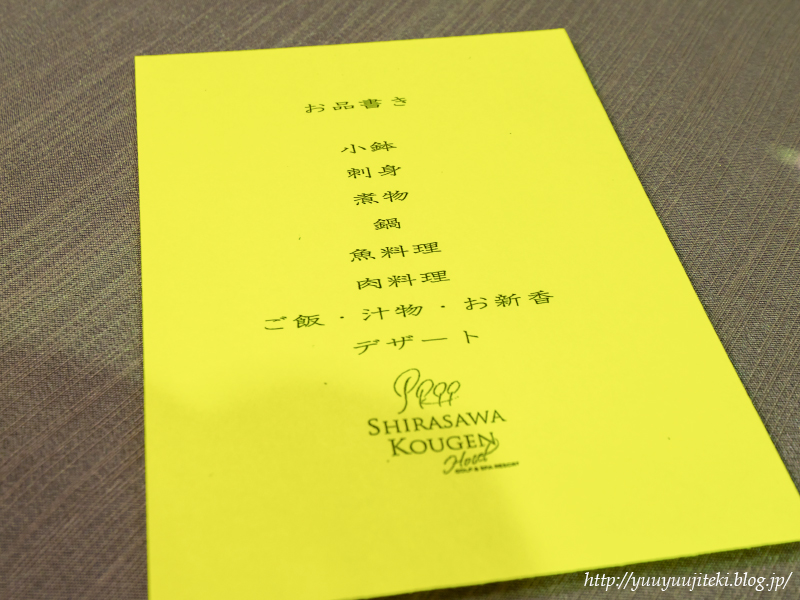 お品書き
小鉢
刺身
煮物
鍋
魚料理
肉料理
ご飯・汁物・お新香
デザート
SHIRASAWA
KOUGEN
Hotel
GOLF & SPA RESORT
http://yuuyuujiteki.blog.jp/